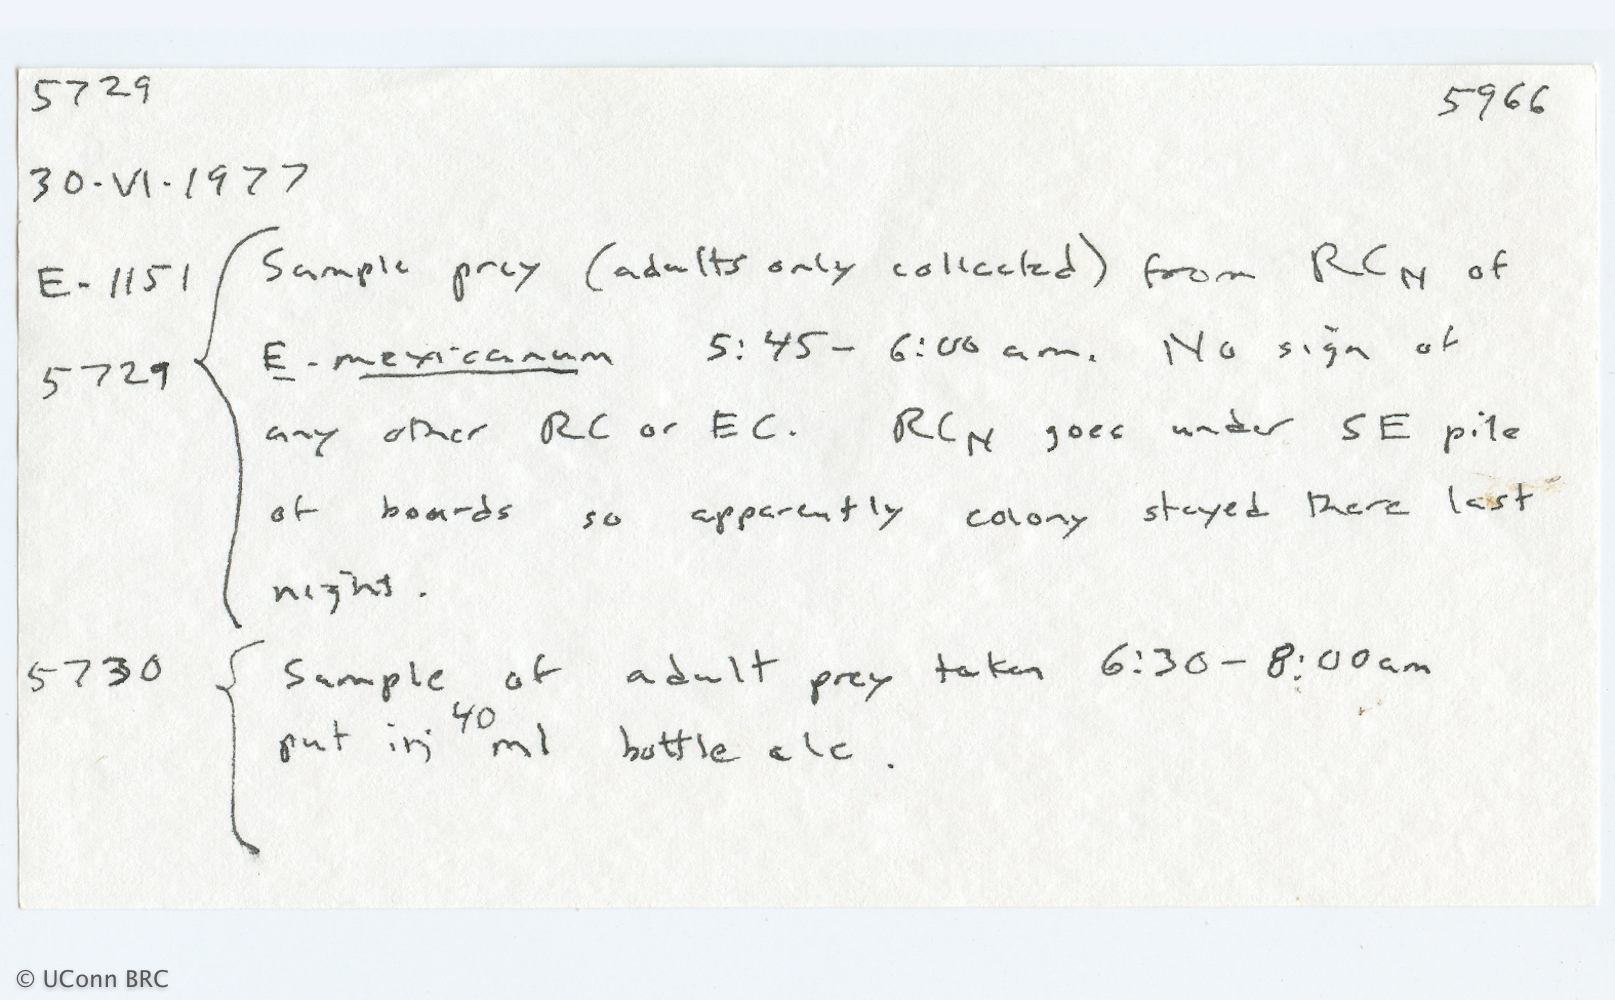 5729 5966
30·VI·1977
E-1151 Sample prey (adults only collected) from RCN of
5729 E. mexicanum 5:45- 6:00 am. No sign of
any other RC or EC. RCN goes under SE pile
of boards so apparently colony stayed there last
night.
5730 Sample of adult prey taken 6:30- 8:00am
put in 40 ml bottle alc.
© UConn BRC